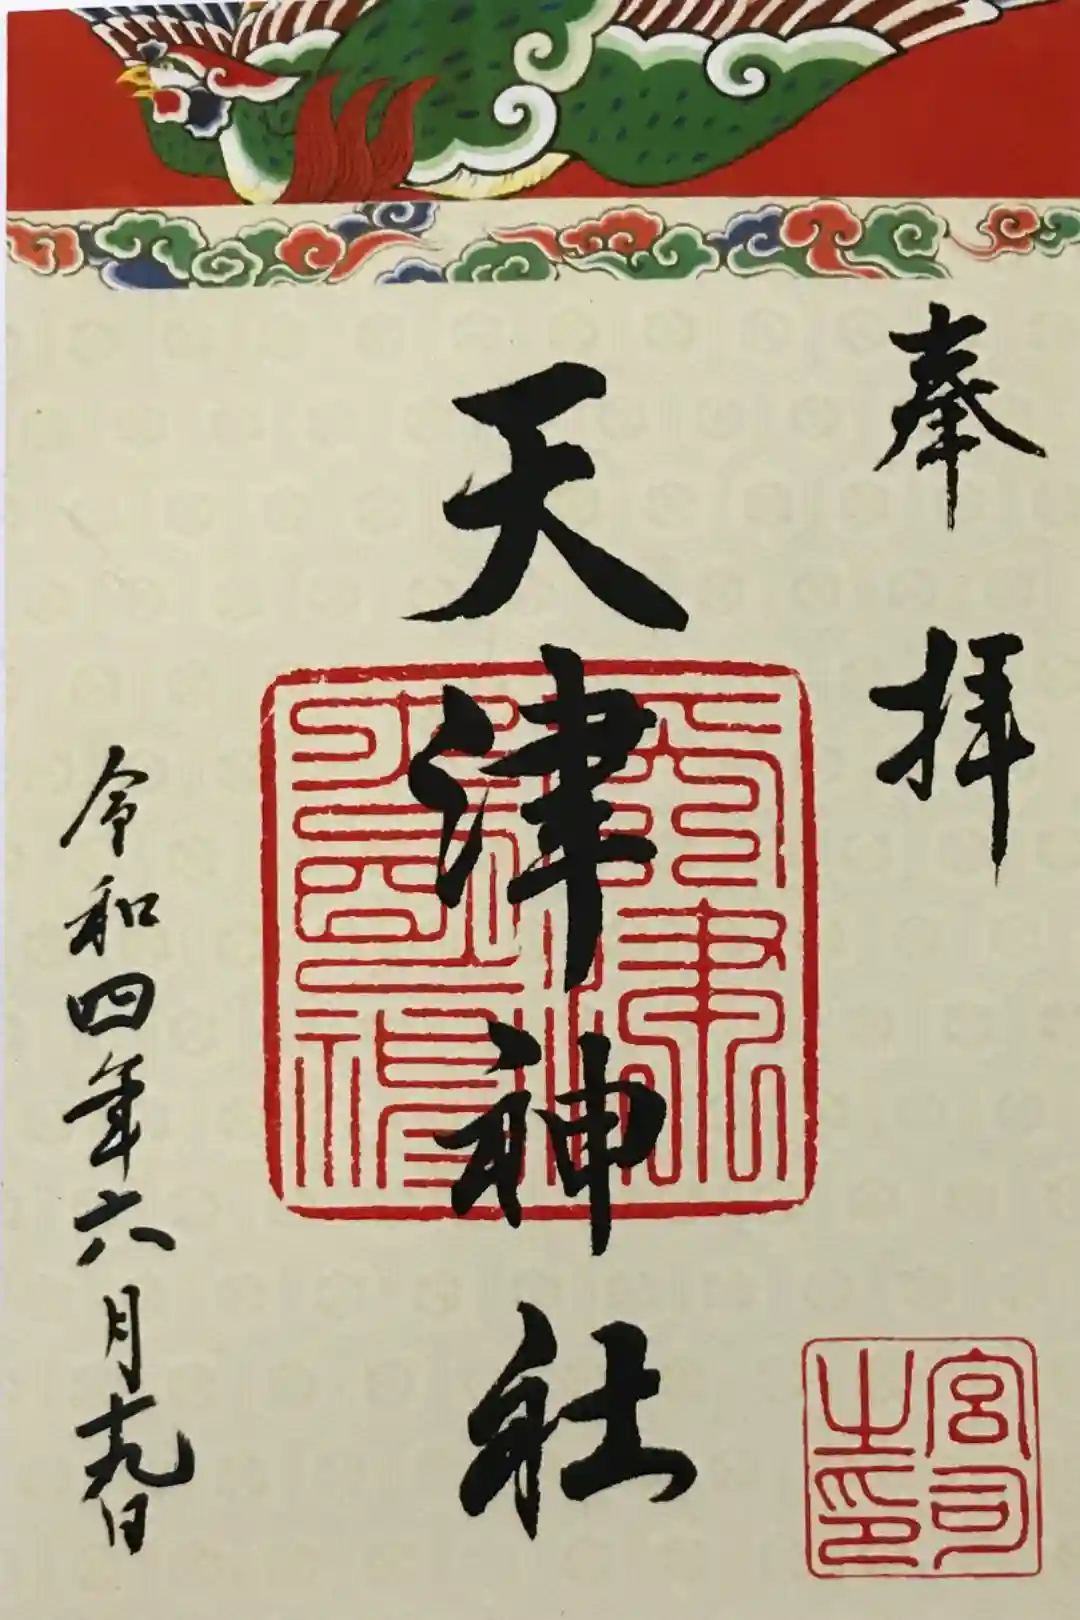 奉拝
天津神社
令和四年六月十九日
宮司之印